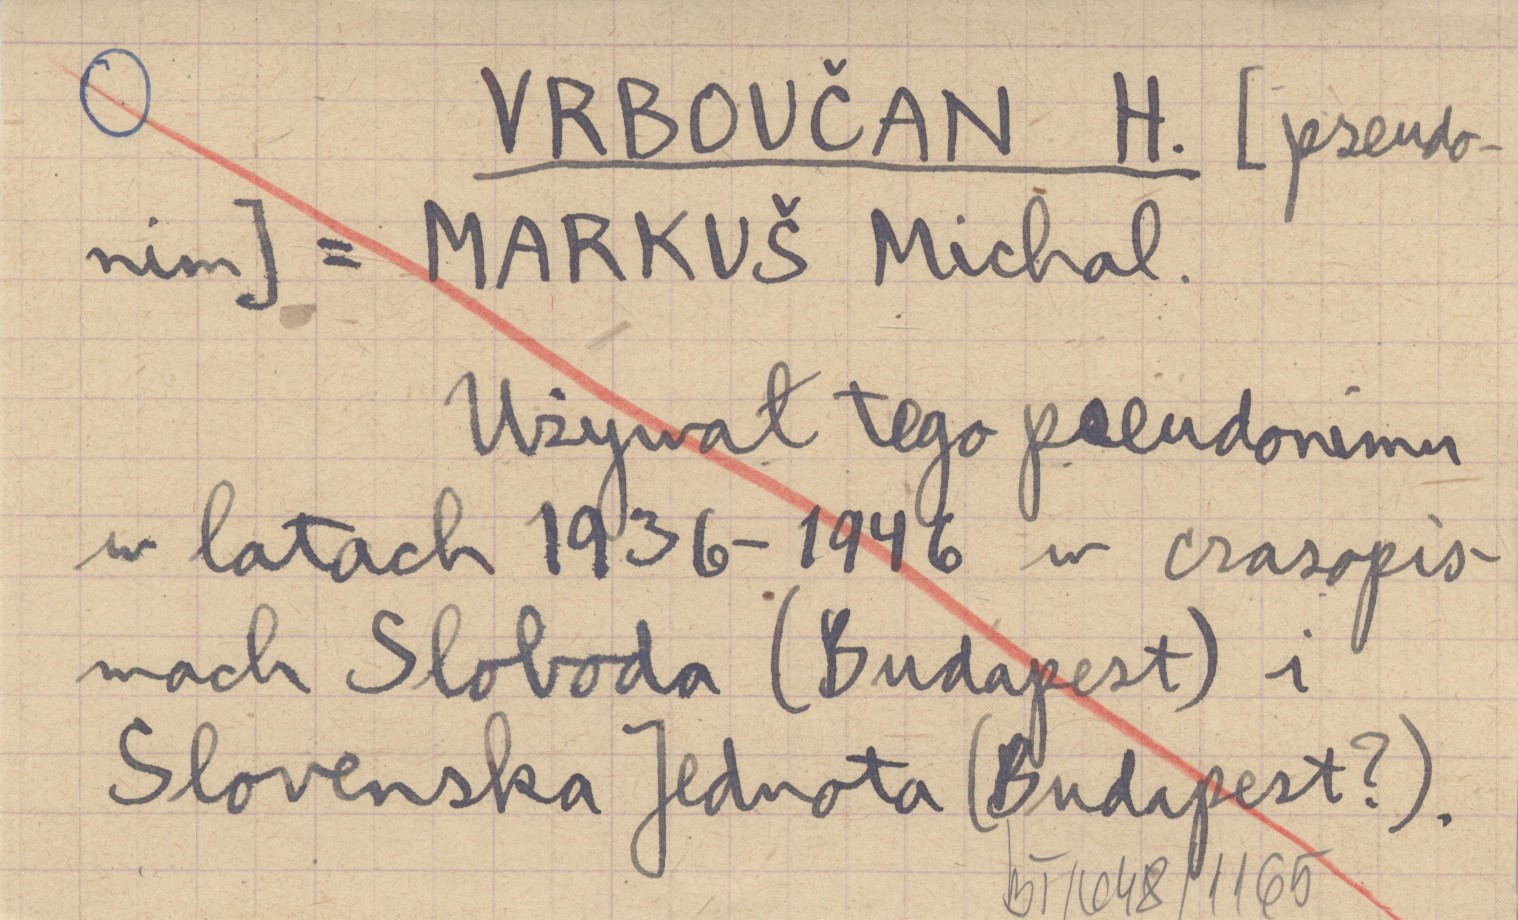 VRBOUČAN H. [pseudo-
nim] = MARKUŠ Michal.
Używał tego pseudonimu
w latach 1936-1946 w czasopis-
mach Sloboda (Budapest) i
Slovenska Jednota (Budapest?).
BT/1648/1165